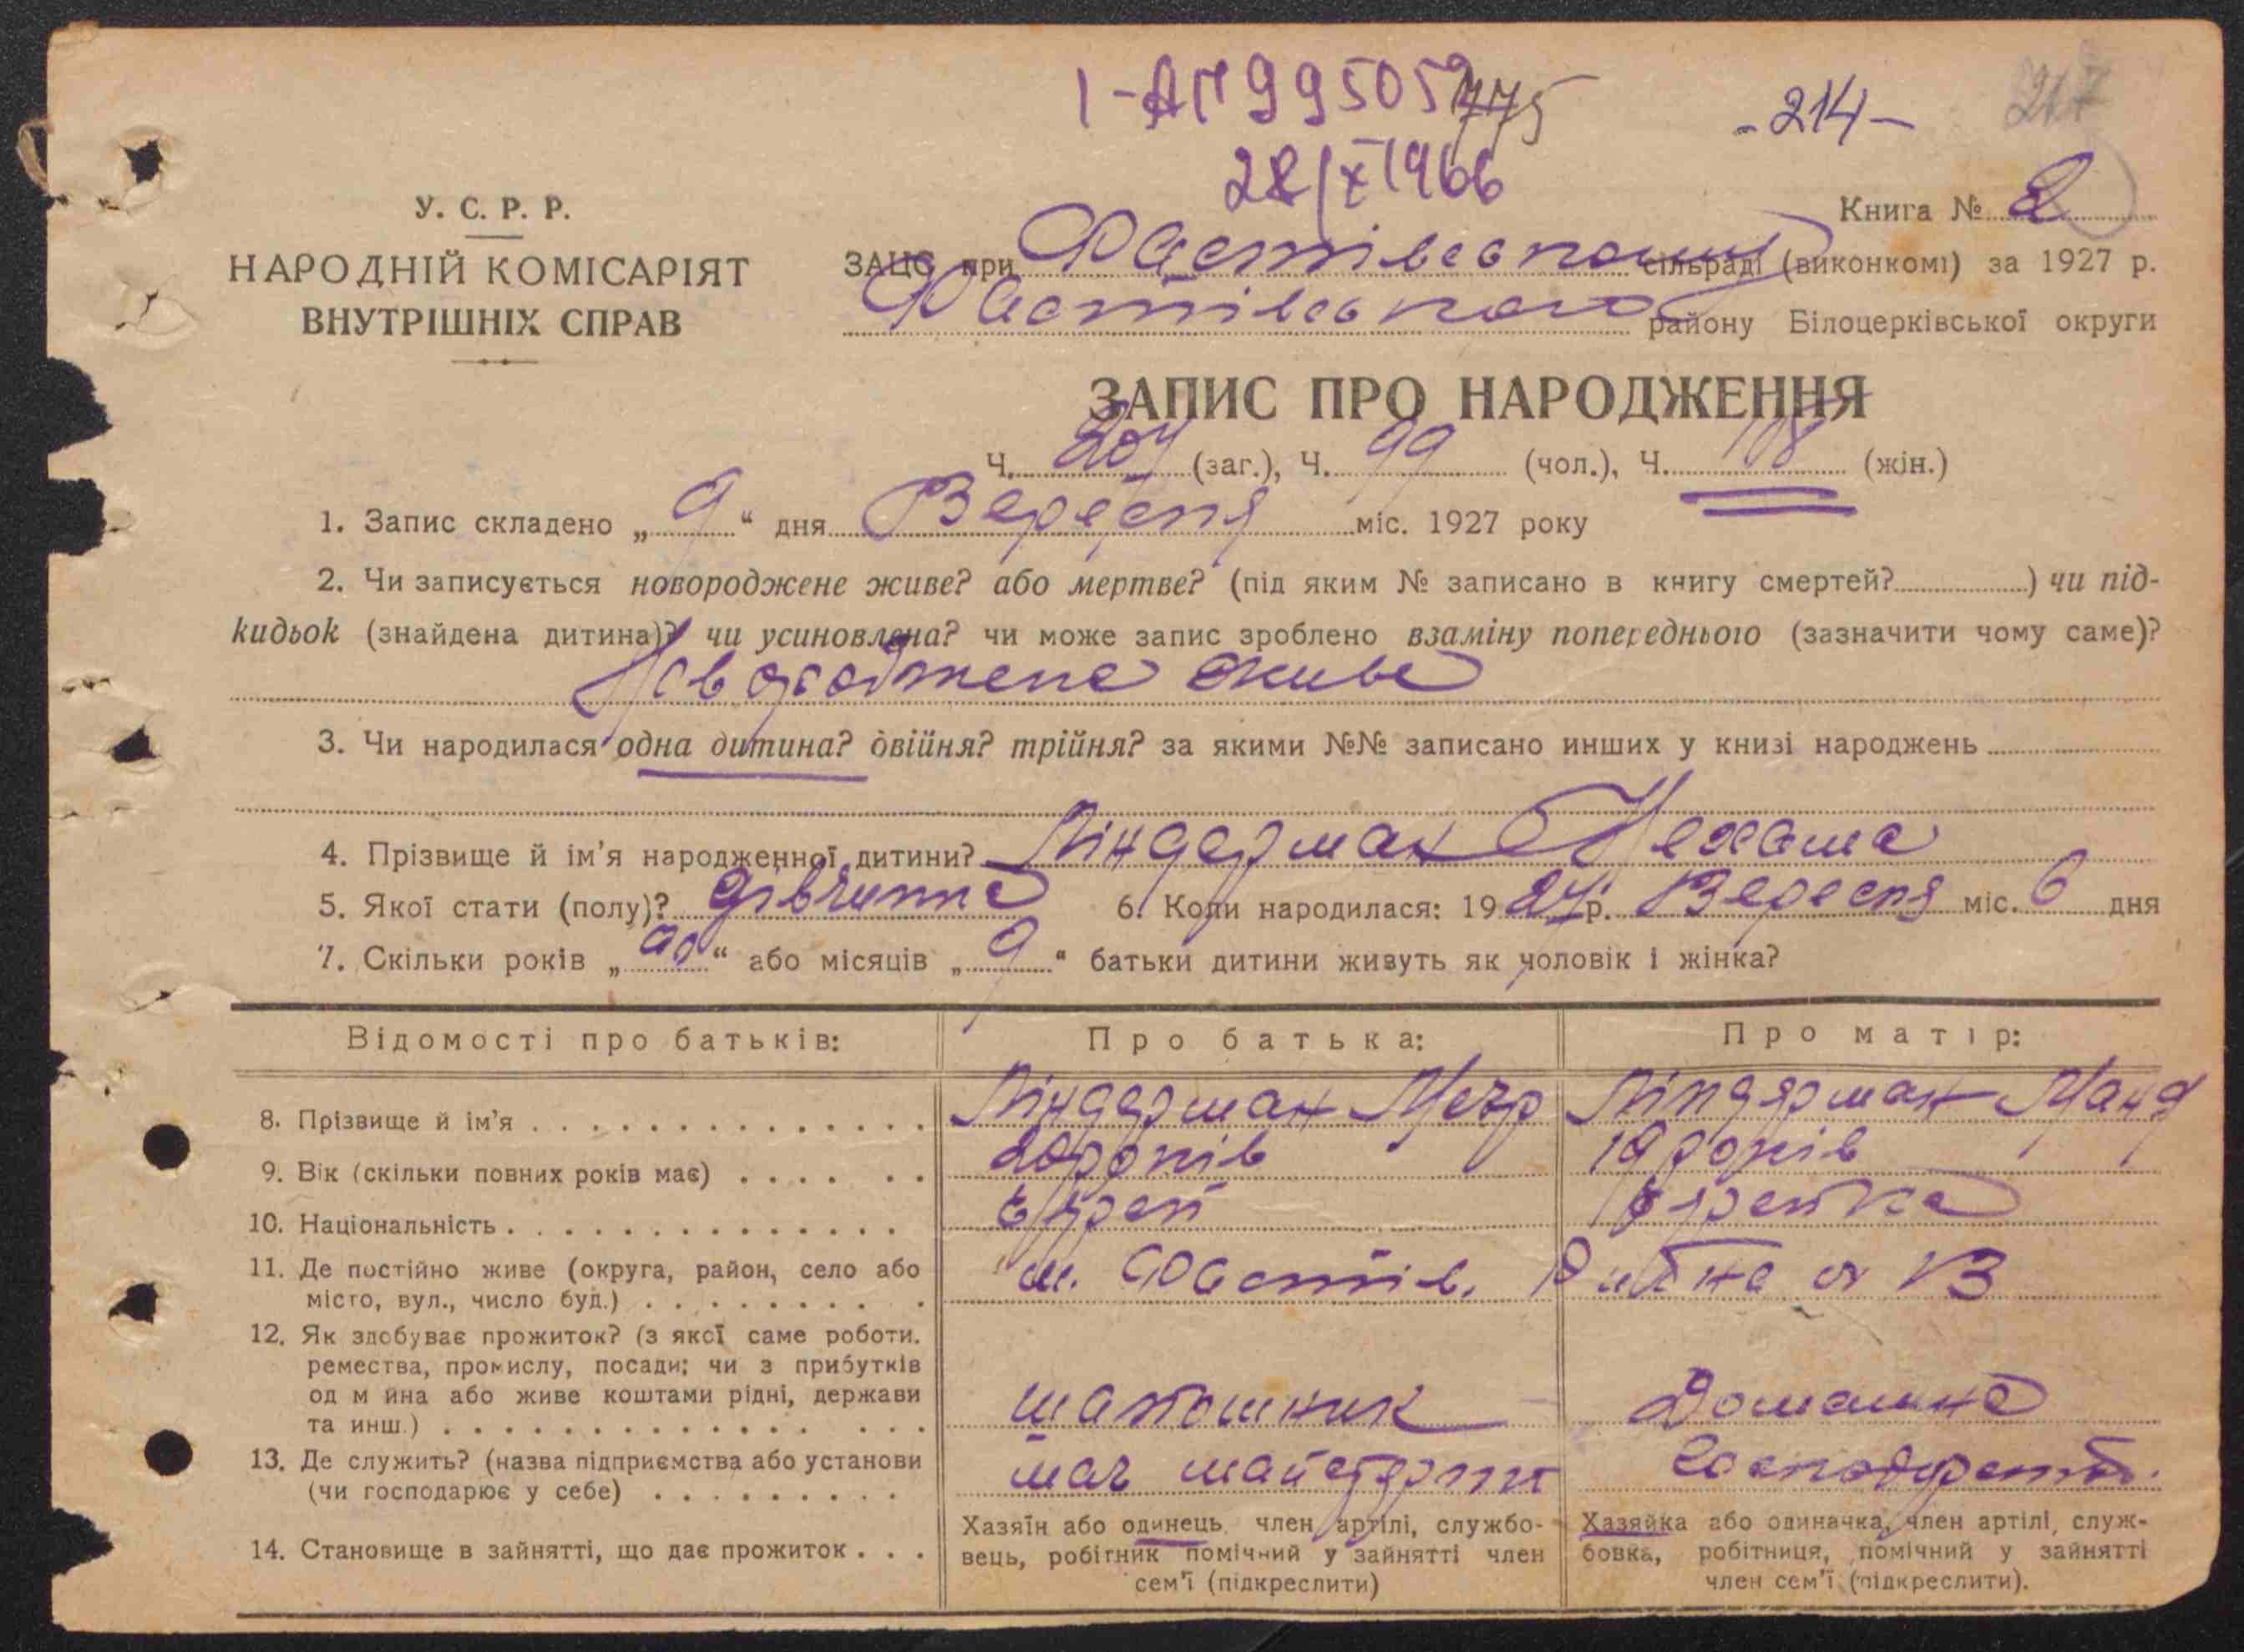 I-АП 995059 775
-214- 217
28/X 1966
У. С. Р. Р.
НАРОДНІЙ КОМІСАРІЯТ
ВНУТРІШНІХ СПРАВ
Книга № 2
ЗАЦС при Фастівському сільраді (виконкомі) за 1927 р.
Фастівського району Білоцерківської округи
ЗАПИС ПРО НАРОДЖЕННЯ
Ч. 207 (заг.), Ч. 99 (чол.), Ч. 108 (жін.)
1. Запис складено „ 9 “ дня Вересня міс. 1927 року
2. Чи записується новороджене живе? або мертве? (під яким № записано в книгу смертей?) чи під-
кидьок (знайдена дитина)? чи усиновлена? чи може запис зроблено взаміну попереднього (зазначити чому саме)?
Новороджене живе
3. Чи народилася одна дитина? двійня? трійня? за якими №№ записано инших у книзі народжень
4. Прізвище й ім’я народженної дитини? Ліндерман Нехама
5. Якої стати (полу)? Дівчинка 6. Коли народилася: 1927 р. Вересня міс. 6 дня
7. Скільки років „ “ або місяців „ 9 “ батьки дитини живуть як чоловік і жінка?
Відомості про батьків: Про батька: Про матір:
8. Прізвище й ім’я Ліндерман Меєр Ліндерман Маня
9. Вік (скільки повних років має) 20 років 19 років
10. Національність Еврей Еврейка
11. Де постійно живе (округа, район, село або
місто, вул., число буд.) м. Фастів.
12. Як здобуває прожиток? (з якої саме роботи.
ремества, промислу, посади; чи з прибутків
од м йна або живе коштами рідні, держави
та инш.) Домашнє
13. Де служить? (назва підприємства або установи
(чи господарює у себе) майстерни
14. Становище в зайнятті, що дає прожиток
Хазяїн або одинець, член артілі, службо-
вець, робітник помічний у зайнятті член
сем’ї (підкреслити)
Хазяйка або одиначка, член артілі, служ-
бовка, робітниця, помічний у зайнятті
член сем’ї (підкреслити).